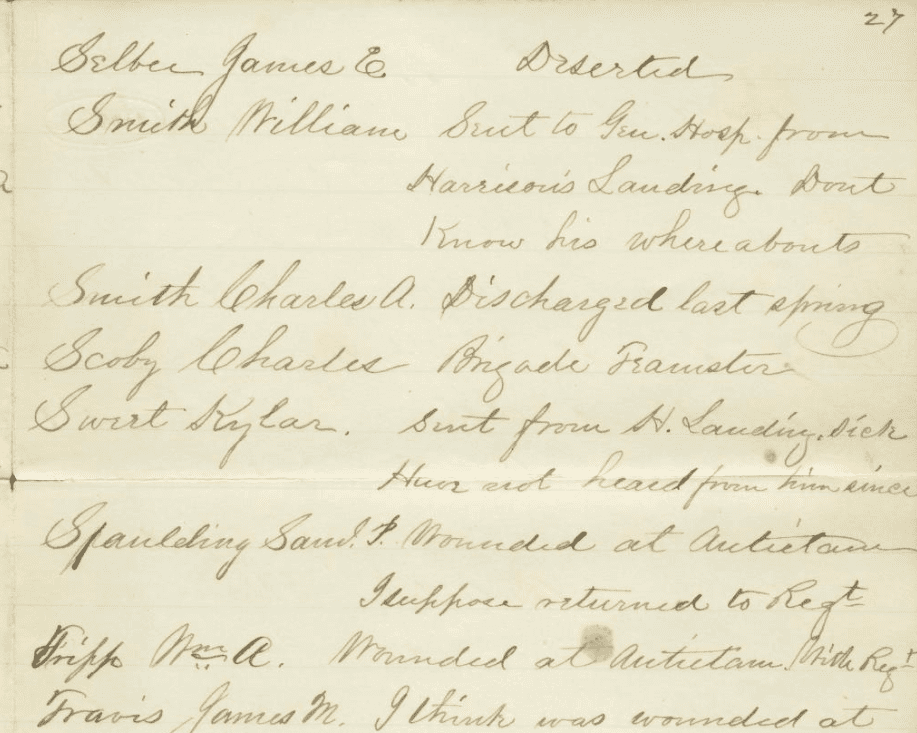 27
Selbee James E. Deserted
Smith William Sent to Gen. Hosp. from
Harrison's Landing. Dont
Know his whereabouts
Smith Charles A. Discharged last spring
Scoby Charles Brigade Teamster
Swert Kylar. Sent from H. Landing. Sick
Have not heard from him since
Spaulding Saml. P. Wounded at Antietam
I suppose returned to Regt
Tripp Wm A. Wounded at Antietam. With Regt
Travis James M. I think was wounded at